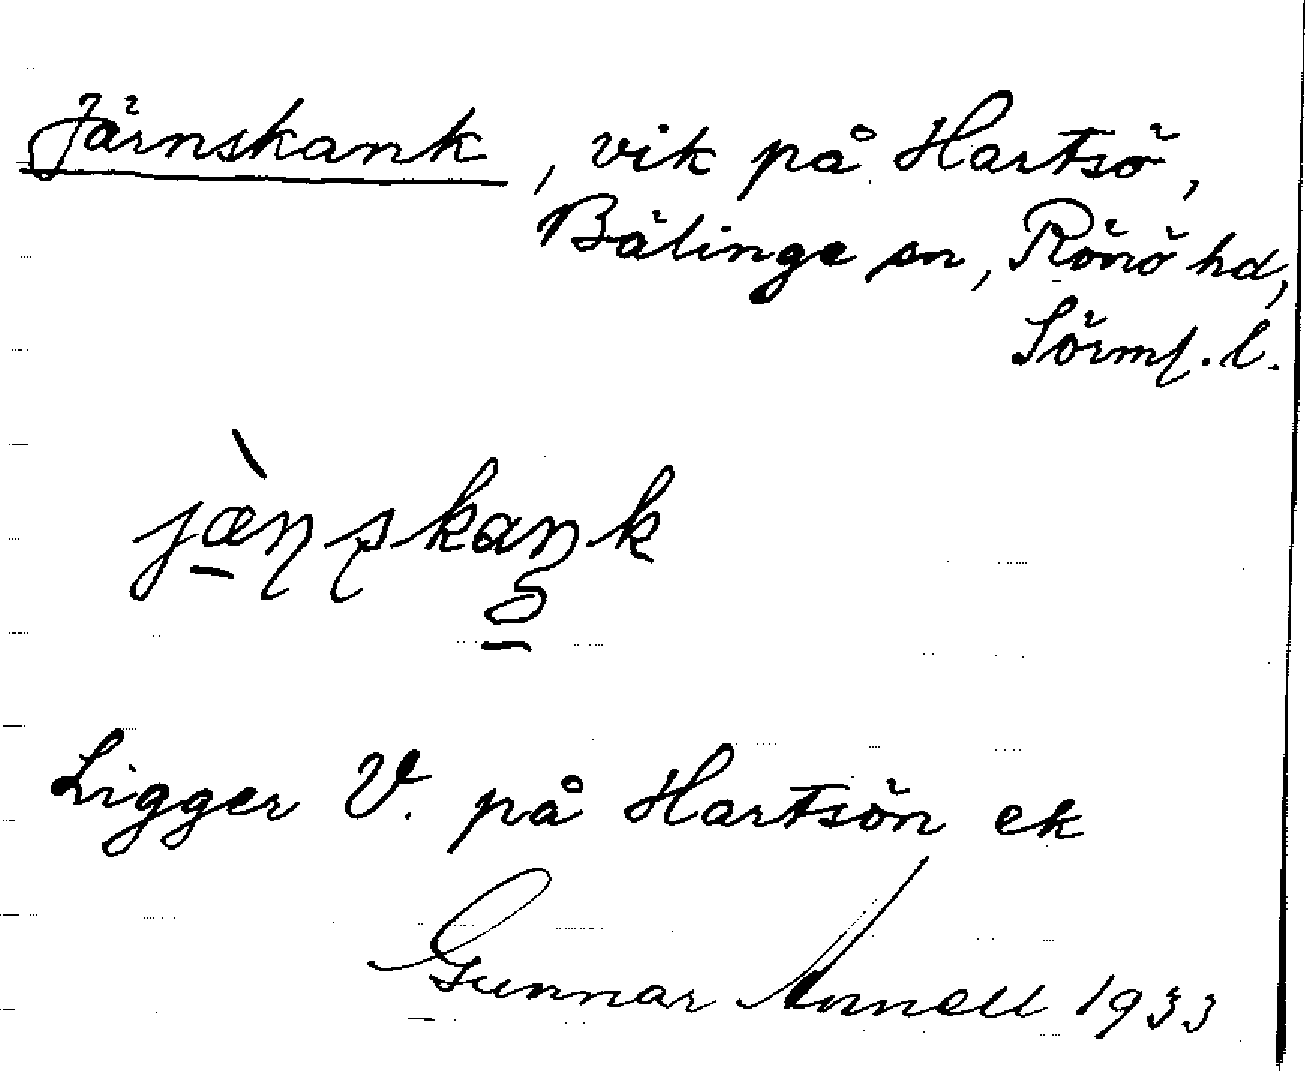 Järnskank, vik på Hartsö,
Bälinge sn, Rönö hd,
Sörml. l.
jæ̀ɳʂkaŋk
Ligger V. på Hartsön ek
Gunnar Annell 1933